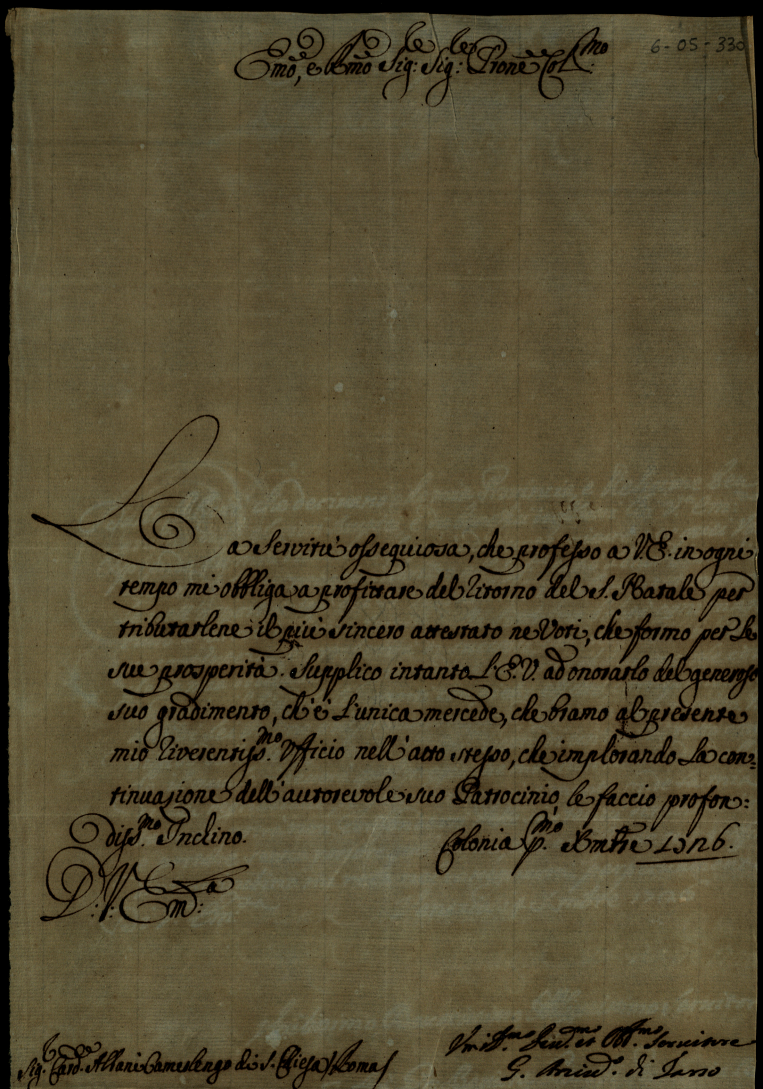 6-05-330
Emo, e Rmo Sig: Sig: Prone Colmo
La Servitù ossequiosa, che professo a V.E. in ogni
tempo mi obbliga a profittare del ritorno del S. Natale per
tributarlene il più sincero attestato ne Voti, che formo per le
sue prosperità. Supplico intanto l'E.V. ad onorarlo del generoso
suo gradimento, ch'è l'unica mercede, che bramo al presente
mio riverentiss.mo Ufficio nell'atto stesso, che implorando la con:
tinuazione dell'autorevole suo Patrocinio, le faccio profon:
diss.mo Inclino.
Colonia p.mo Xmbre 1726.
D: V: Em:a
Sig.r Card. Albani Camerlengo di S. Chiesa / Roma /
et Obb.mo Servitore
G. Arciv.o di Tarso